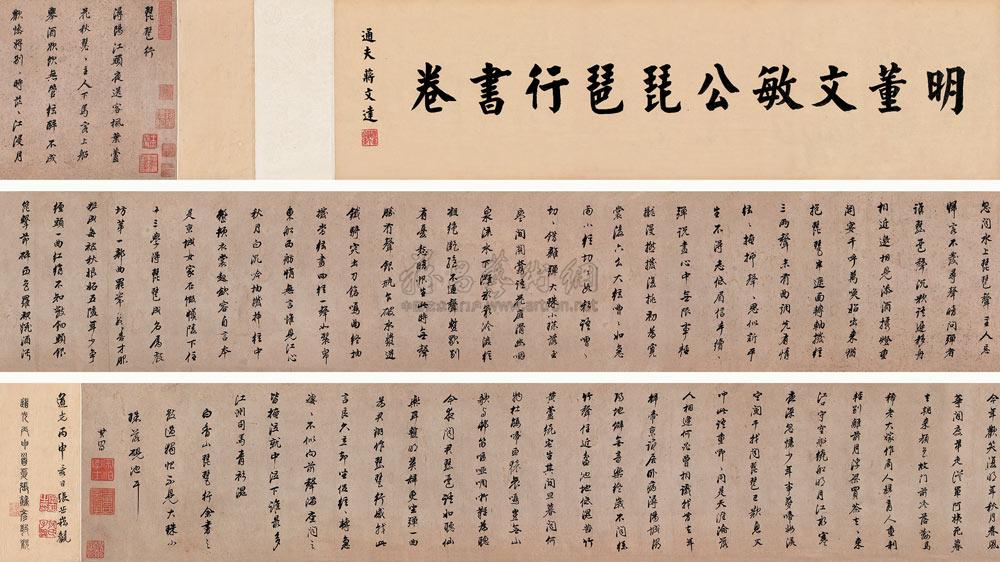 明董文敏公琵琶行書卷
通夫蔣文達
琵琶行
潯陽江頭夜送客楓葉蘆
花秋瑟々主人下馬客上船
舉酒欲飲無管絃醉不成
歡慘將別々時茫々江浸月
忽聞水上琵琶聲主人忘
歸客不發尋聲暗問彈者
誰琵琶聲沉欲語遲移舟
相近邀相見添酒撼燈重
開宴千呼萬喚始出來猶
抱琵琶半遮面轉軸撥絃
三兩聲未有曲調先有情
絃々掩抑聲々思似訴平
生不得志低眉信手續々
彈說盡心中無限事輕
攏慢撚撥復挑初為霓
裳後六么大絃嘈々如急
雨小絃切々如私語嘈々
切々錯雜彈大珠小珠落玉
盤間關鶯語花底滑幽咽
泉流水下灘水泉冷澀絃
凝絕凝絕不通聲暫歇別
有幽愁暗恨生此時無聲
勝有聲銀瓶乍破水漿迸
鐵騎突出刀鎗鳴曲終抽
撥當心畫四絃一聲如裂帛
東船西舫悄無言唯見江心
秋月白沉吟放撥插絃中
整頓衣裳起斂容自言本
是京城女家在蝦蟆陵下住
十三學得琵琶成名屬教
坊第一部曲罷常教善才服
妝成每被秋娘妬五陵年少爭
纏頭一曲紅綃不知數鈿頭銀
篦擊節碎血色羅裙翻酒污
今年歡笑復明年秋月春風
等閒度弟走從軍阿姨死暮
去朝來顏色故門前冷落鞍馬
稀老大嫁作商人婦商人重利
輕別離前月浮梁買茶去々來
江口守空船繞船明月江水寒
夜深忽夢少年事夢啼妝淚
紅闌干我聞琵琶已歎息又
聞此語重唧々同是天涯淪落
人相逢何必曾相識我從去年
辭帝京謫居臥病潯陽城潯
陽地僻無音樂終歲不聞絲
竹聲住近湓池地低濕苦竹
黃蘆繞宅生其間旦暮聞何
物杜鵑啼血猿哀鳴豈無山
歌與村笛嘔啞啁哳難為聽
今夜聞君琵琶語如聽仙
樂耳暫明莫辭更坐彈一曲
為君翻作琵琶行感我此
言良久立卻坐促絃々轉急
淒々不似向前聲滿座聞之
皆掩泣就中泣下誰最多
江州司馬青衫濕
白香山琵琶行余書之
大珠小
珠落硯池平
其昌
道光丙申